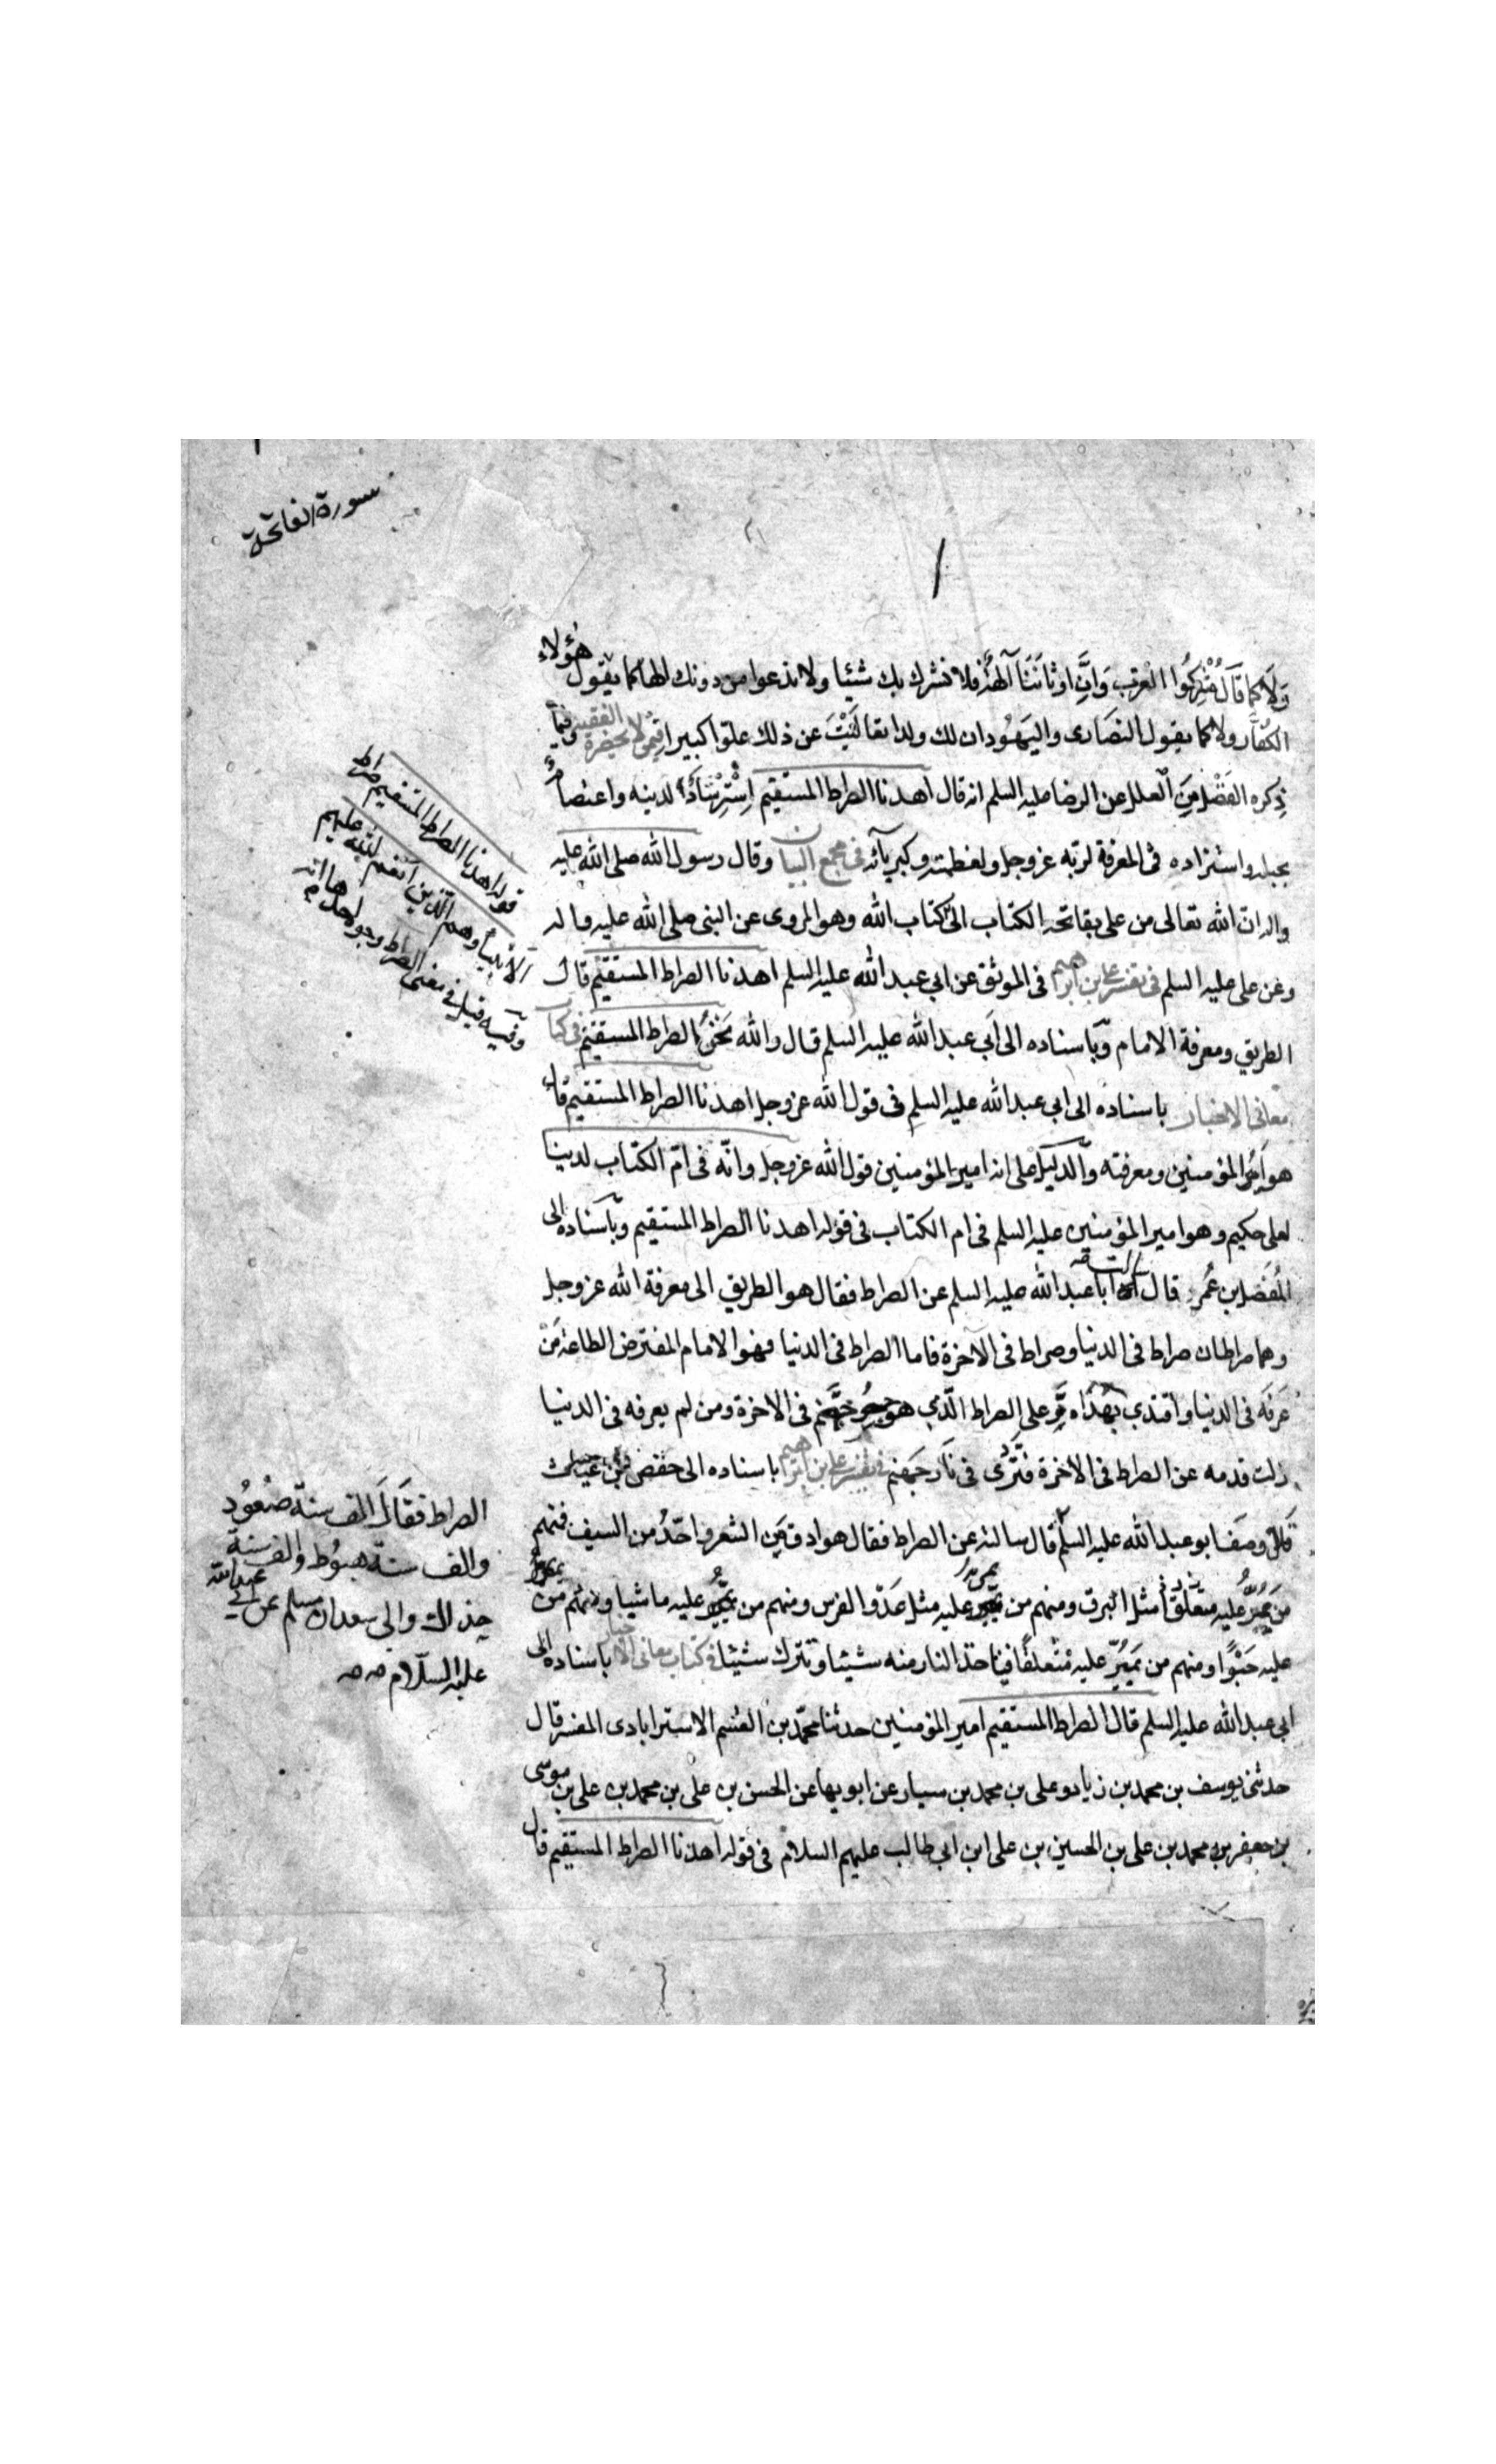 سورة الفاتحة
هؤلاء
ولا كما قال مشركوا العرب وان اوثاننا آلهة فلا نشرك بك شيئا ولا ندعوا من دونك الها كما يقول
الكفار ولا كما يقول النصارى واليهود ان لك ولدا تعاليت عن ذلك علوا كبيرا فيمن لا يحضره الفقيه وفيما
ذكره الفضل من العلل عن الرضا عليه السلم انه قال اهدنا الصراط المستقيم استرشادا لدينه واعتصاما
بحبله واستزاده فى المعرفة لربه عز وجل ولعظمته وكبريآئه فى مجمع البيان وقال رسول الله صلى الله عليه
واله ان الله تعالى من على بفاتحة الكتاب الى كتاب الله وهو المروى عن النبى صلى الله عليه واله
وعن على عليه السلم فى تفسير على بن ابرهيم فى الموثق عن ابي عبد الله عليه السلم اهدنا الصراط المستقيم قال
الطريق ومعرفة الامام وباسناده الى ابي عبد الله عليه السلم قال والله نحن الصراط المستقيم فى كتاب
معانى الاخبار باسناده الى ابي عبد الله عليه السلم فى قول الله عز وجل اهدنا الصراط المستقيم قال
هو امير المؤمنين ومعرفته والدليل على انه امير المؤمنين قول الله عز وجل وانّه فى امّ الكتاب لدينا
لعلى حكيم وهو امير المؤمنين عليه السلم فى ام الكتاب فى قوله اهدنا الصراط المستقيم وباسناده الى
المفضل بن عمر قال سالت ابا عبد الله عليه السلم عن الصراط فقال هو الطريق الى معرفة الله عز وجل
وهما صراطان صراط فى الدنيا وصراط فى الآخرة فاما الصراط فى الدنيا فهو الامام المفترض الطاعة من
عرفه فى الدنيا واقتدي بهداه مرّ على الصراط الّذي هو جسر جهنّم فى الاخرة ومن لم يعرفه فى الدنيا
زلت قدمه عن الصراط فى الاخرة فتردّى فى نار جهنم فى تفسير على بن ابرهيم باسناده الى حفص بن غياث
قال وصف ابو عبد الله عليه السلم قال سالته عن الصراط فقال هو ادق من الشعر واحدّ من السيف فمنهم
من يمرّ عليه مثل البرق ومنهم من يمر عليه مثل عدو الفرس ومنهم من يمرّ عليه ماشيا ومنهم من يمر
عليه حبوًا ومنهم من يمرّ عليه متعلقًا فيأخذ النار منه شيئا وتترك شيئا فى كتاب معانى الاخبار باسناده الى
ابي عبد الله عليه السلم قال الصراط المستقيم امير المؤمنين حدثنا محمّد بن القسم الاسترابادى المفسر قال
حدثنى يوسف بن محمد بن زياد وعلى بن محمد بن سيار عن ابويهما عن الحسن بن على بن محمد بن على بن موسى
بن جعفر بن محمد بن على بن الحسين بن على ابن ابى طالب عليهم السلام فى قوله اهدنا الصراط المستقيم قال
قوله اهدنا الصراط المستقيم صراط
الذين انعم الله عليهم وهم الأنبيا
وفيه قيل فى معنى الصراط وجوه احدها انه
الصراط فقال الف سنة صعود
والف سنة هبوط والف سنة
حذلك والى سعدان مسلم عن ابي عبد الله
عليه السلام